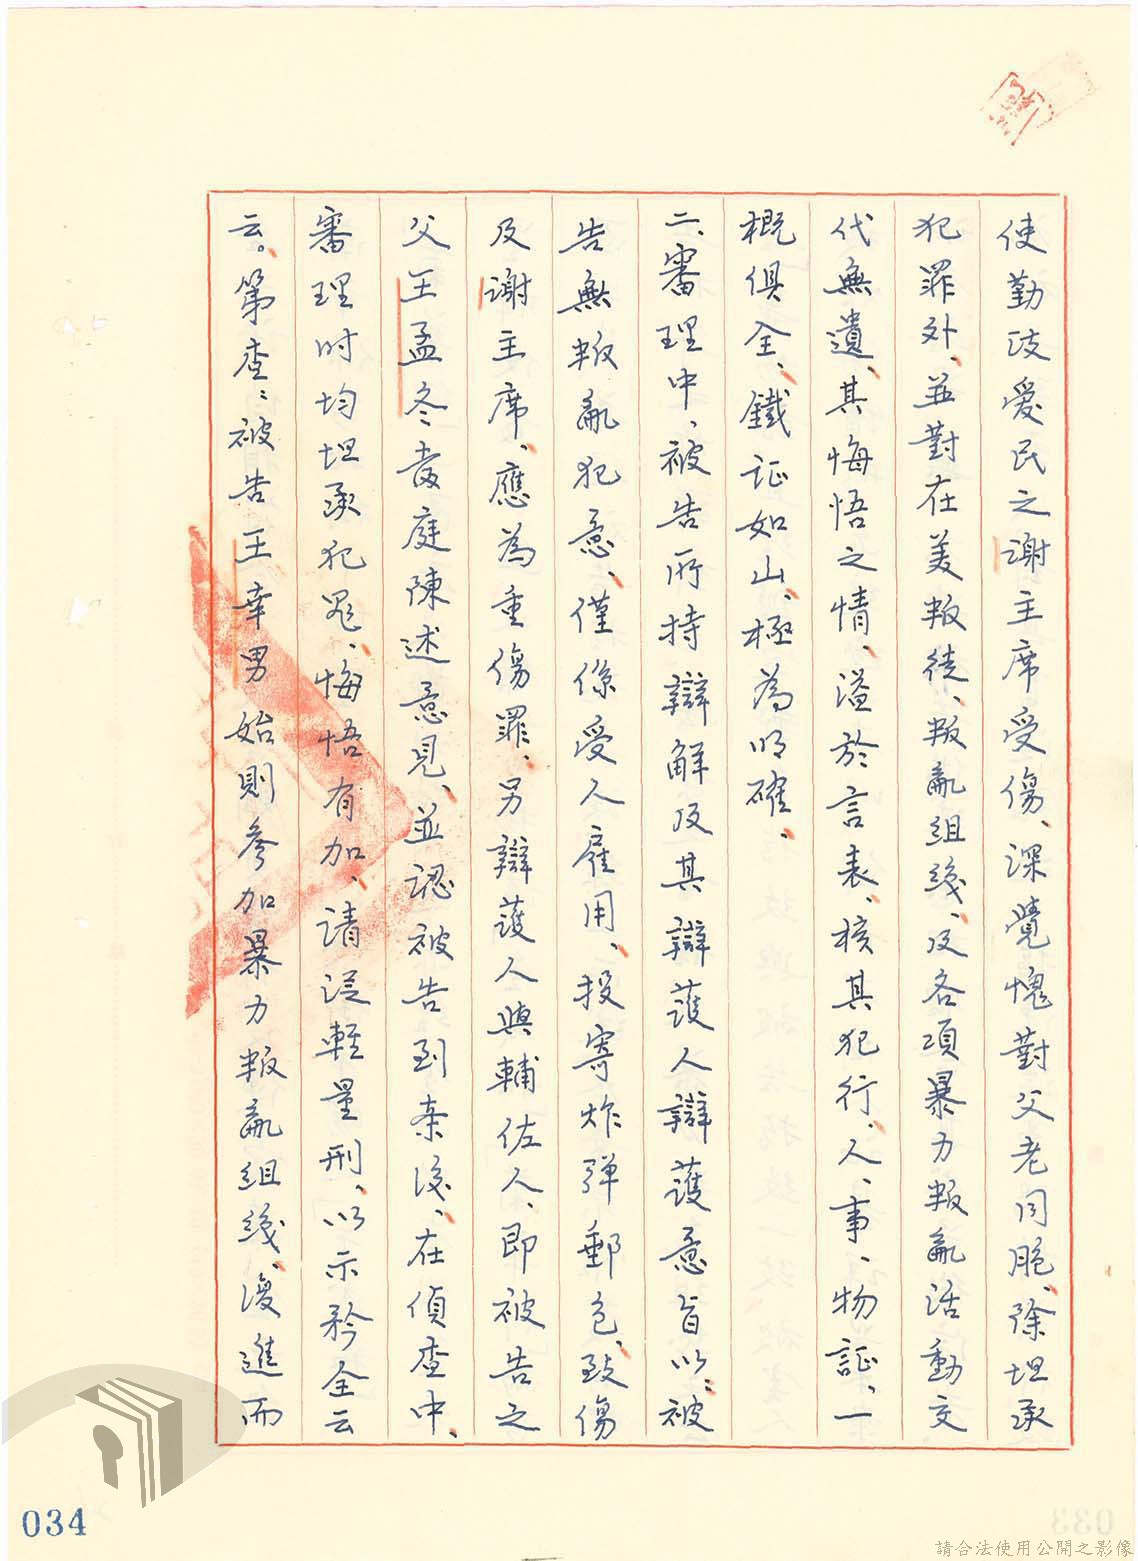 使勤政愛民之謝主席受傷、深覺愧對父老同胞、除坦承
犯罪外、並對在美叛徒、叛亂組織、及各項暴力叛亂活動交
代無遺、其悔悟之情、溢於言表、核其犯行、人、事、物証、一
概俱全、鐵証如山、極為明確、
二、審理中、被告所持辯解及其辯護人辯護意旨以：被
告無叛亂犯意、僅係受人雇用、投寄炸彈郵包、致傷
及謝主席、應為重傷罪、另辯護人與輔佐人、即被告之
父王孟冬當庭陳述意見、並認被告到案後、在偵查中、
審理時均坦承犯罪、悔悟有加、請從輕量刑、以示矜全云
云。第查：被告王幸男始則參加暴力叛亂組織、復進而
034
033
請合法使用公開之影像